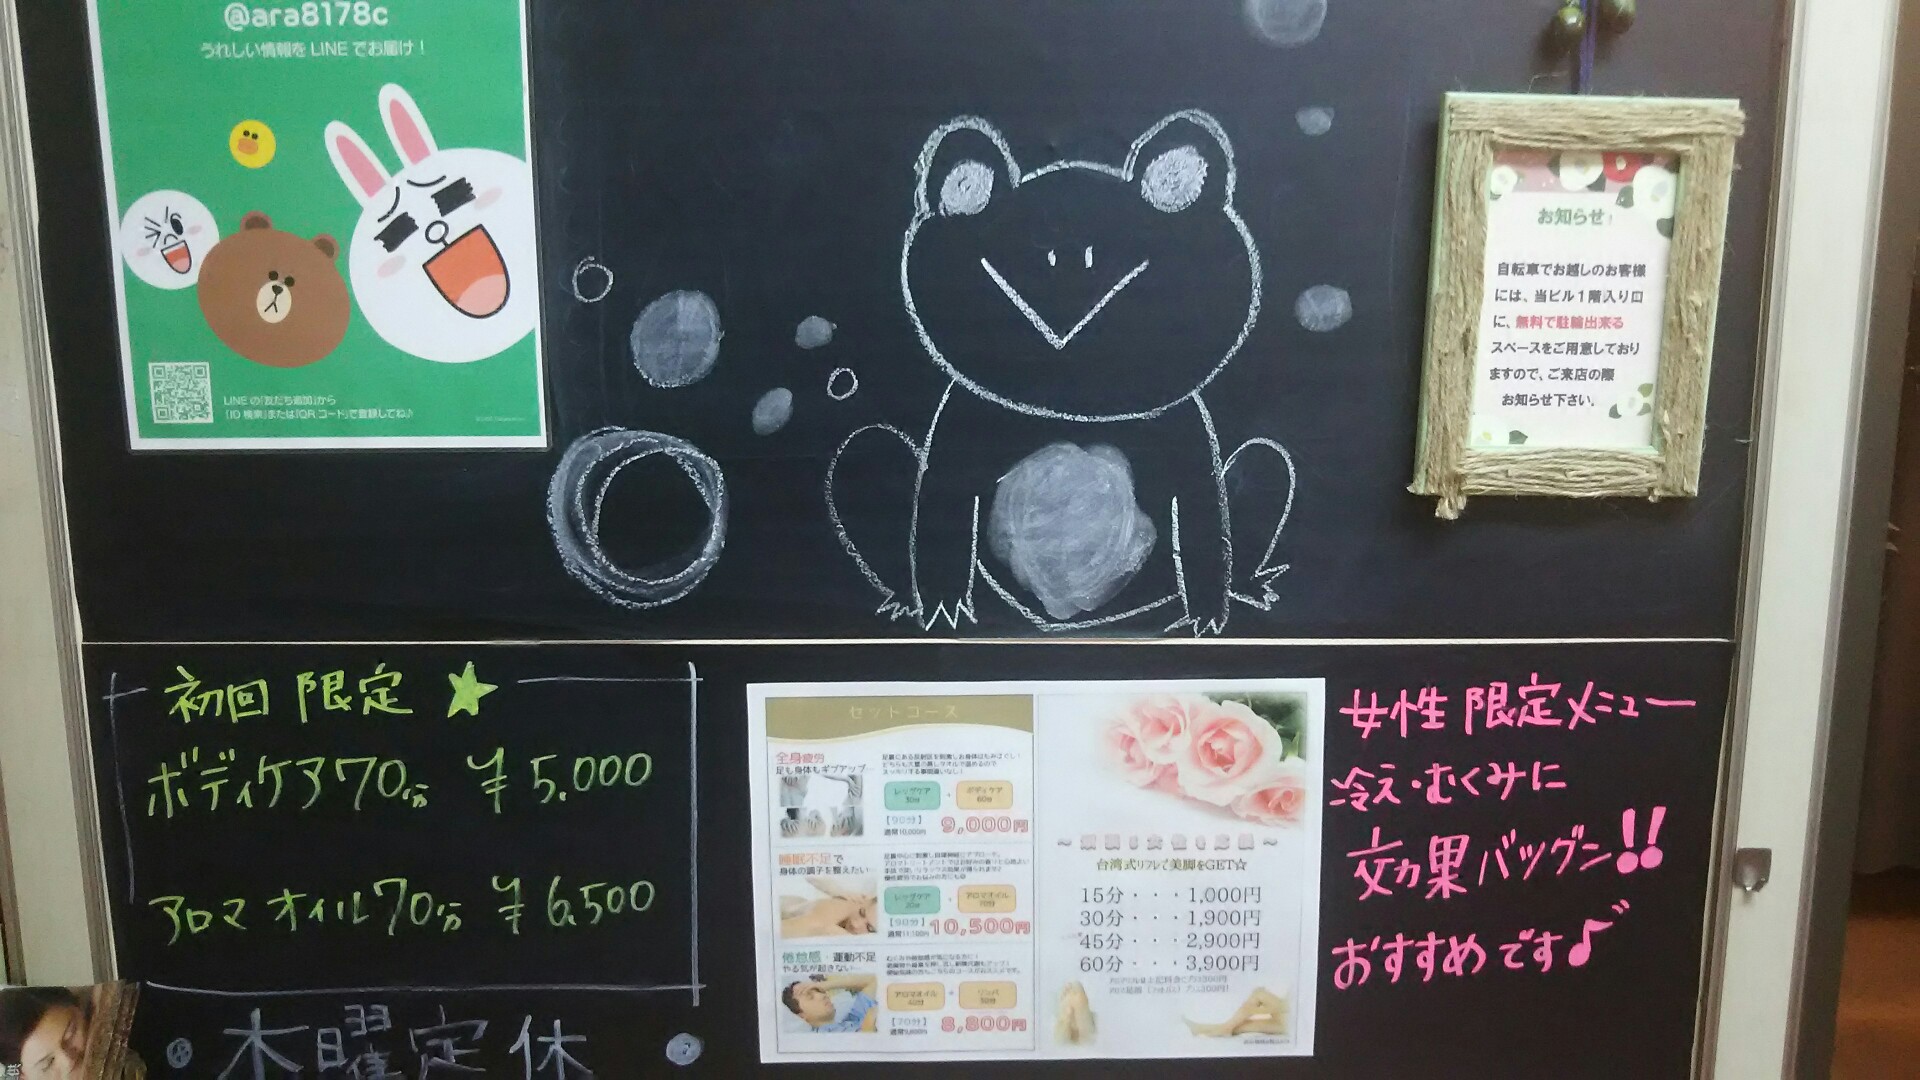 @ara8178c
うれしい情報をLINEでお届け！
LINEの「友だち追加」から
「ID検索」または「QRコード」で登録してね♪
お知らせ！
自転車でお越しのお客様
には、当ビル1階入り口
に、無料で駐輪出来る
スペースをご用意しており
ますので、ご来店の際
お知らせ下さい。
初回限定★
ボディケア70分 ¥5.000
アロマオイル70分 ¥6,500
木曜定休
セットコース
全身疲労
足も身体もギブアップ…
レッグケア
30分
+
ボディケア
60分
【90分】
通常10,000円
9,000円
睡眠不足で
身体の調子を整えたい…
レッグケア
20分
+
アロマオイル
70分
【90分】
10,500円
倦怠感・運動不足
やる気が起きない…
アロマオイル
+
【70分】
8,800円
台湾式リフレで美脚をGET☆
15分・・・1,000円
30分・・・1,900円
45分・・・2,900円
60分・・・3,900円
女性限定メニュー
冷え・むくみに
効果バツグン!!
おすすめです♪